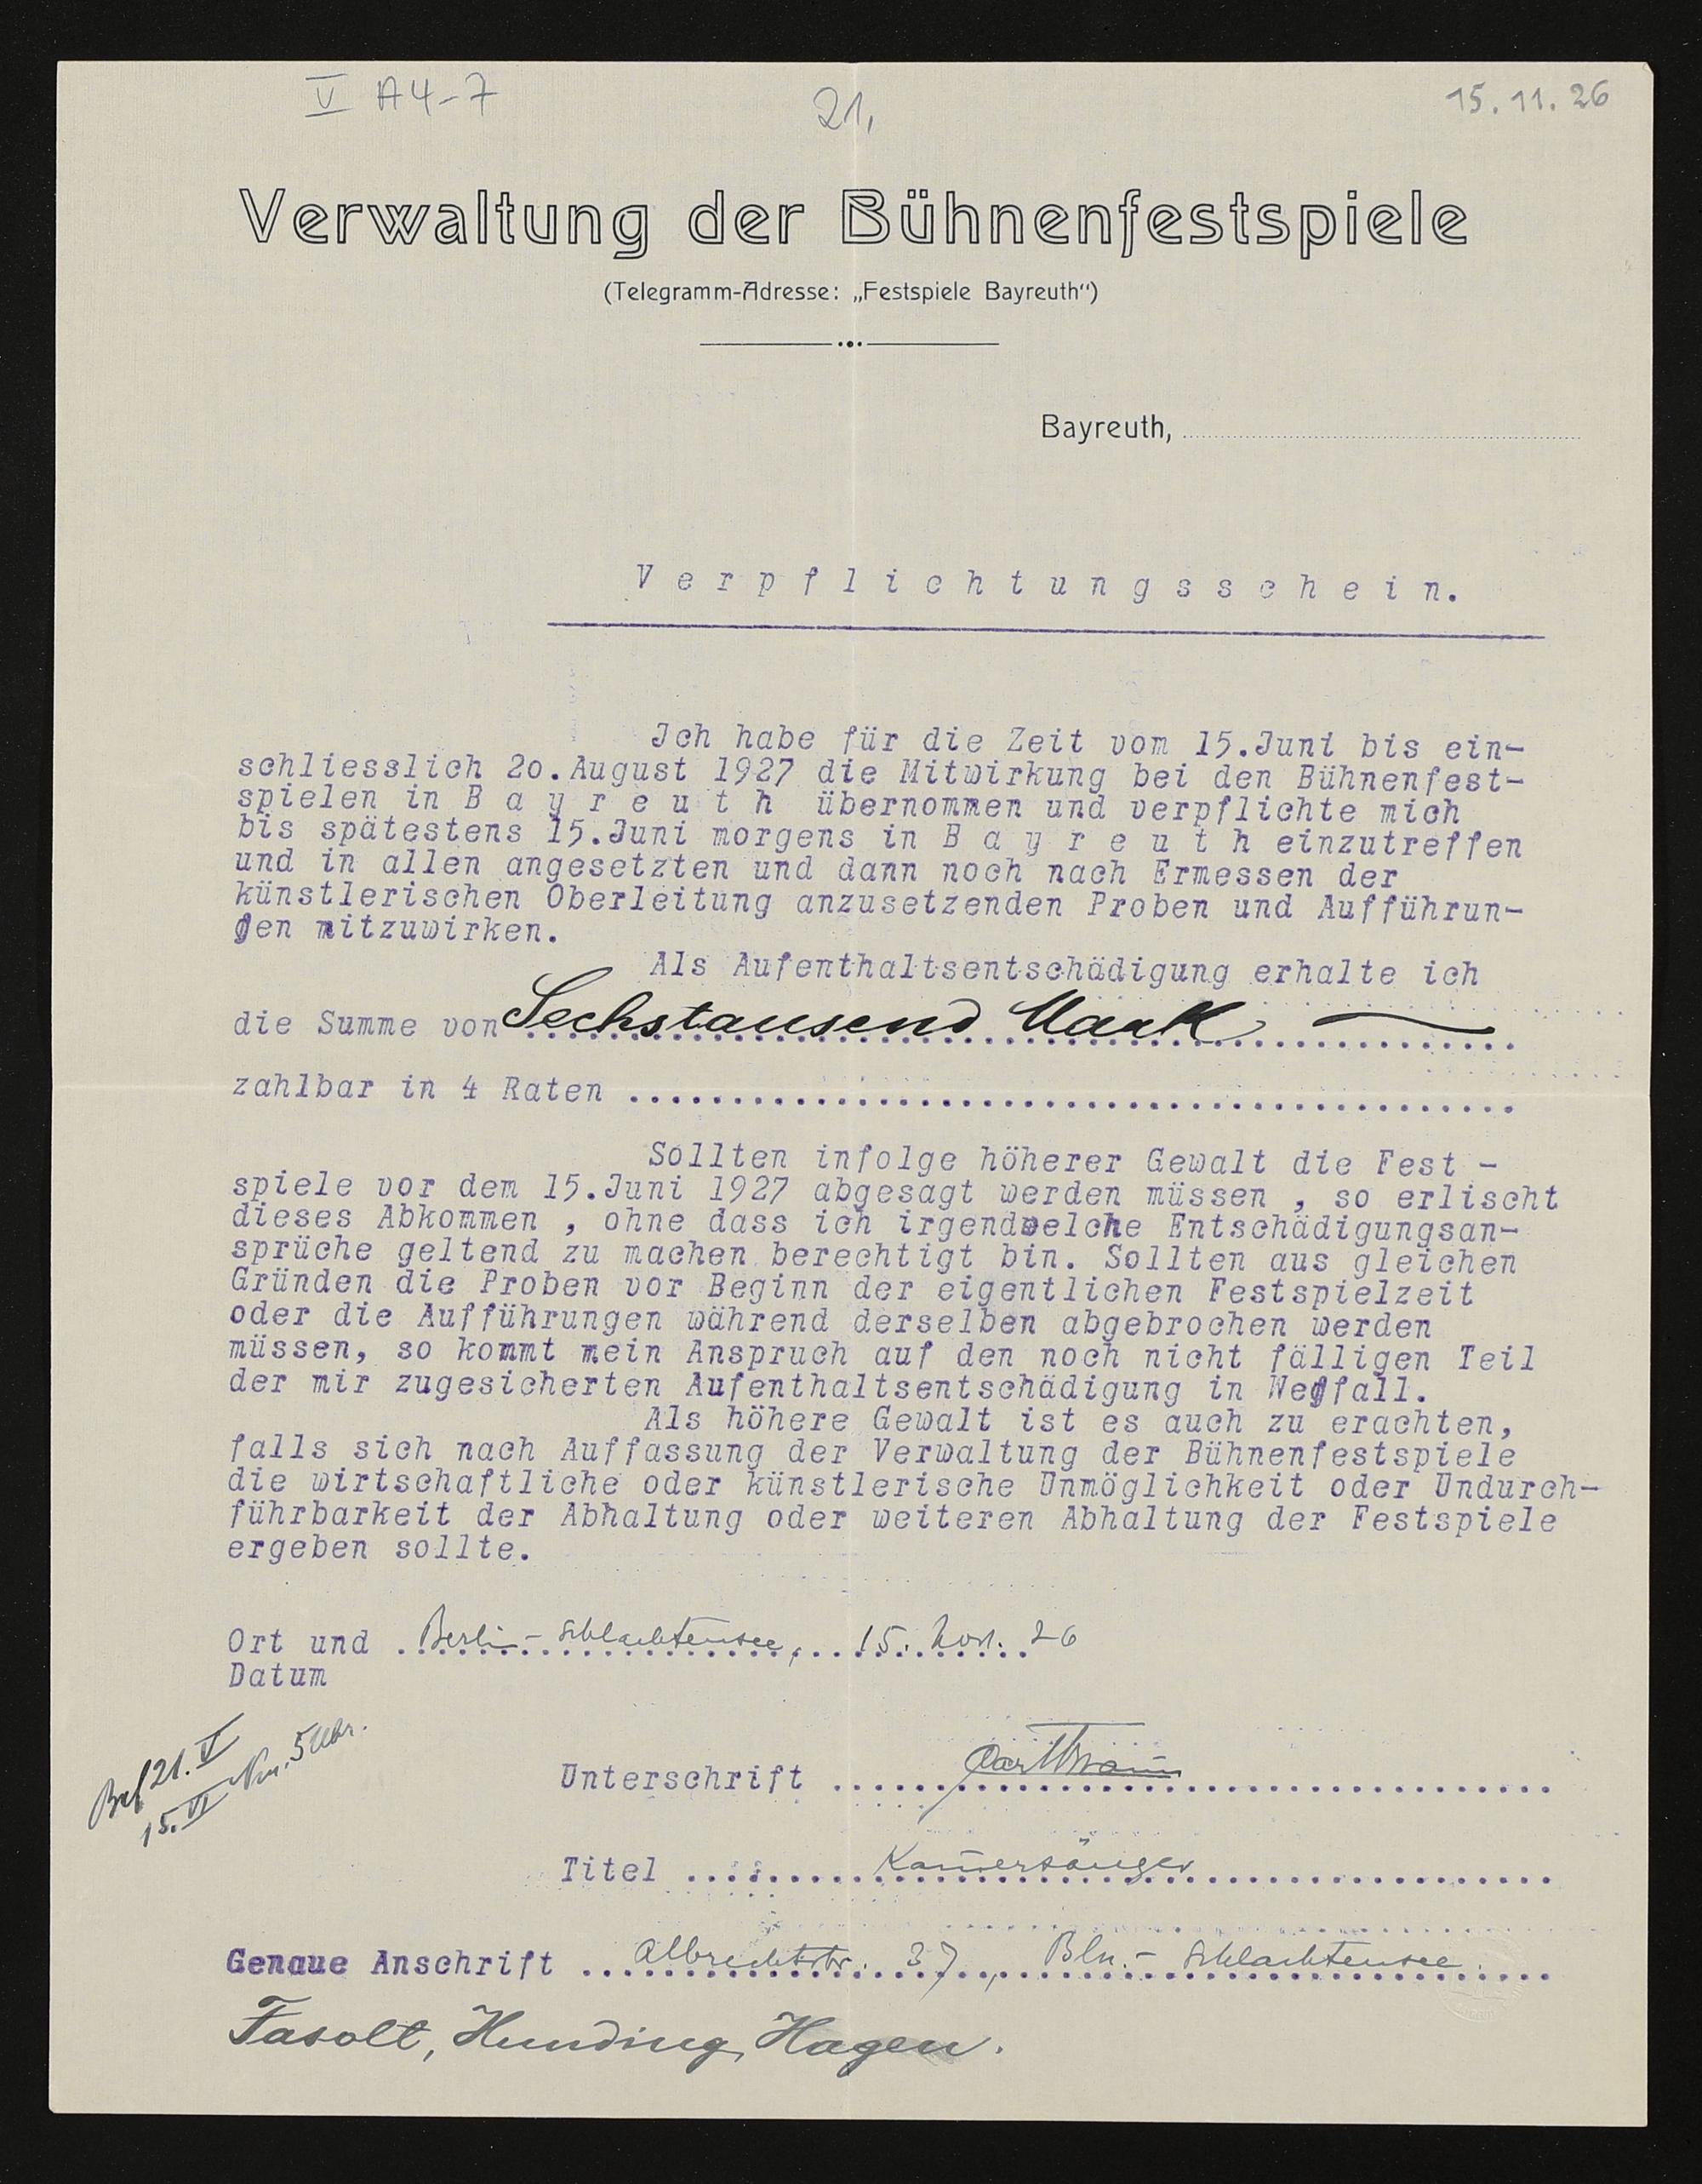 V A4-7
21,
15.11.26
Verwaltung der Bühnenfestspiele
(Telegramm-Adresse: „Festspiele Bayreuth“)
Bayreuth,
Verpflichtungsschein.
Ich habe für die Zeit vom 15.Juni bis ein-
schliesslich 2o.August 1927 die Mitwirkung bei den Bühnenfest-
spielen in B a y r e u t h übernommen und verpflichte mich
bis spätestens 15.Juni morgens in B a y r e u t h einzutreffen
und in allen angesetzten und dann noch nach Ermessen der
künstlerischen Oberleitung anzusetzenden Proben und Aufführun-
gen mitzuwirken.
Als Aufenthaltsentschädigung erhalte ich
die Summe von Sechstausend Mark
zahlbar in 4 Raten
Sollten infolge höherer Gewalt die Fest -
spiele vor dem 15.Juni 1927 abgesagt werden müssen , so erlischt
dieses Abkommen , ohne dass ich irgendwelche Entschädigungsan-
sprüche geltend zu machen berechtigt bin. Sollten aus gleichen
Gründen die Proben vor Beginn der eigentlichen Festspielzeit
oder die Aufführungen während derselben abgebrochen werden
müssen, so kommt mein Anspruch auf den noch nicht fälligen Teil
der mir zugesicherten Aufenthaltsentschädigung in Wegfall.
Als höhere Gewalt ist es auch zu erachten,
falls sich nach Auffassung der Verwaltung der Bühnenfestspiele
die wirtschaftliche oder künstlerische Unmöglichkeit oder Undurch-
führbarkeit der Abhaltung oder weiteren Abhaltung der Festspiele
ergeben sollte.
Ort und Berlin-Schlachtensee, 15. Nov. 26
Datum
21.V
15.VI Nm. 5 Uhr.
Unterschrift Carl Braun
Titel Kam̄ersänger
Genaue Anschrift Albrechtstr. 37, Bln.- Schlachtensee.
Fasolt, Hunding, Hagen.